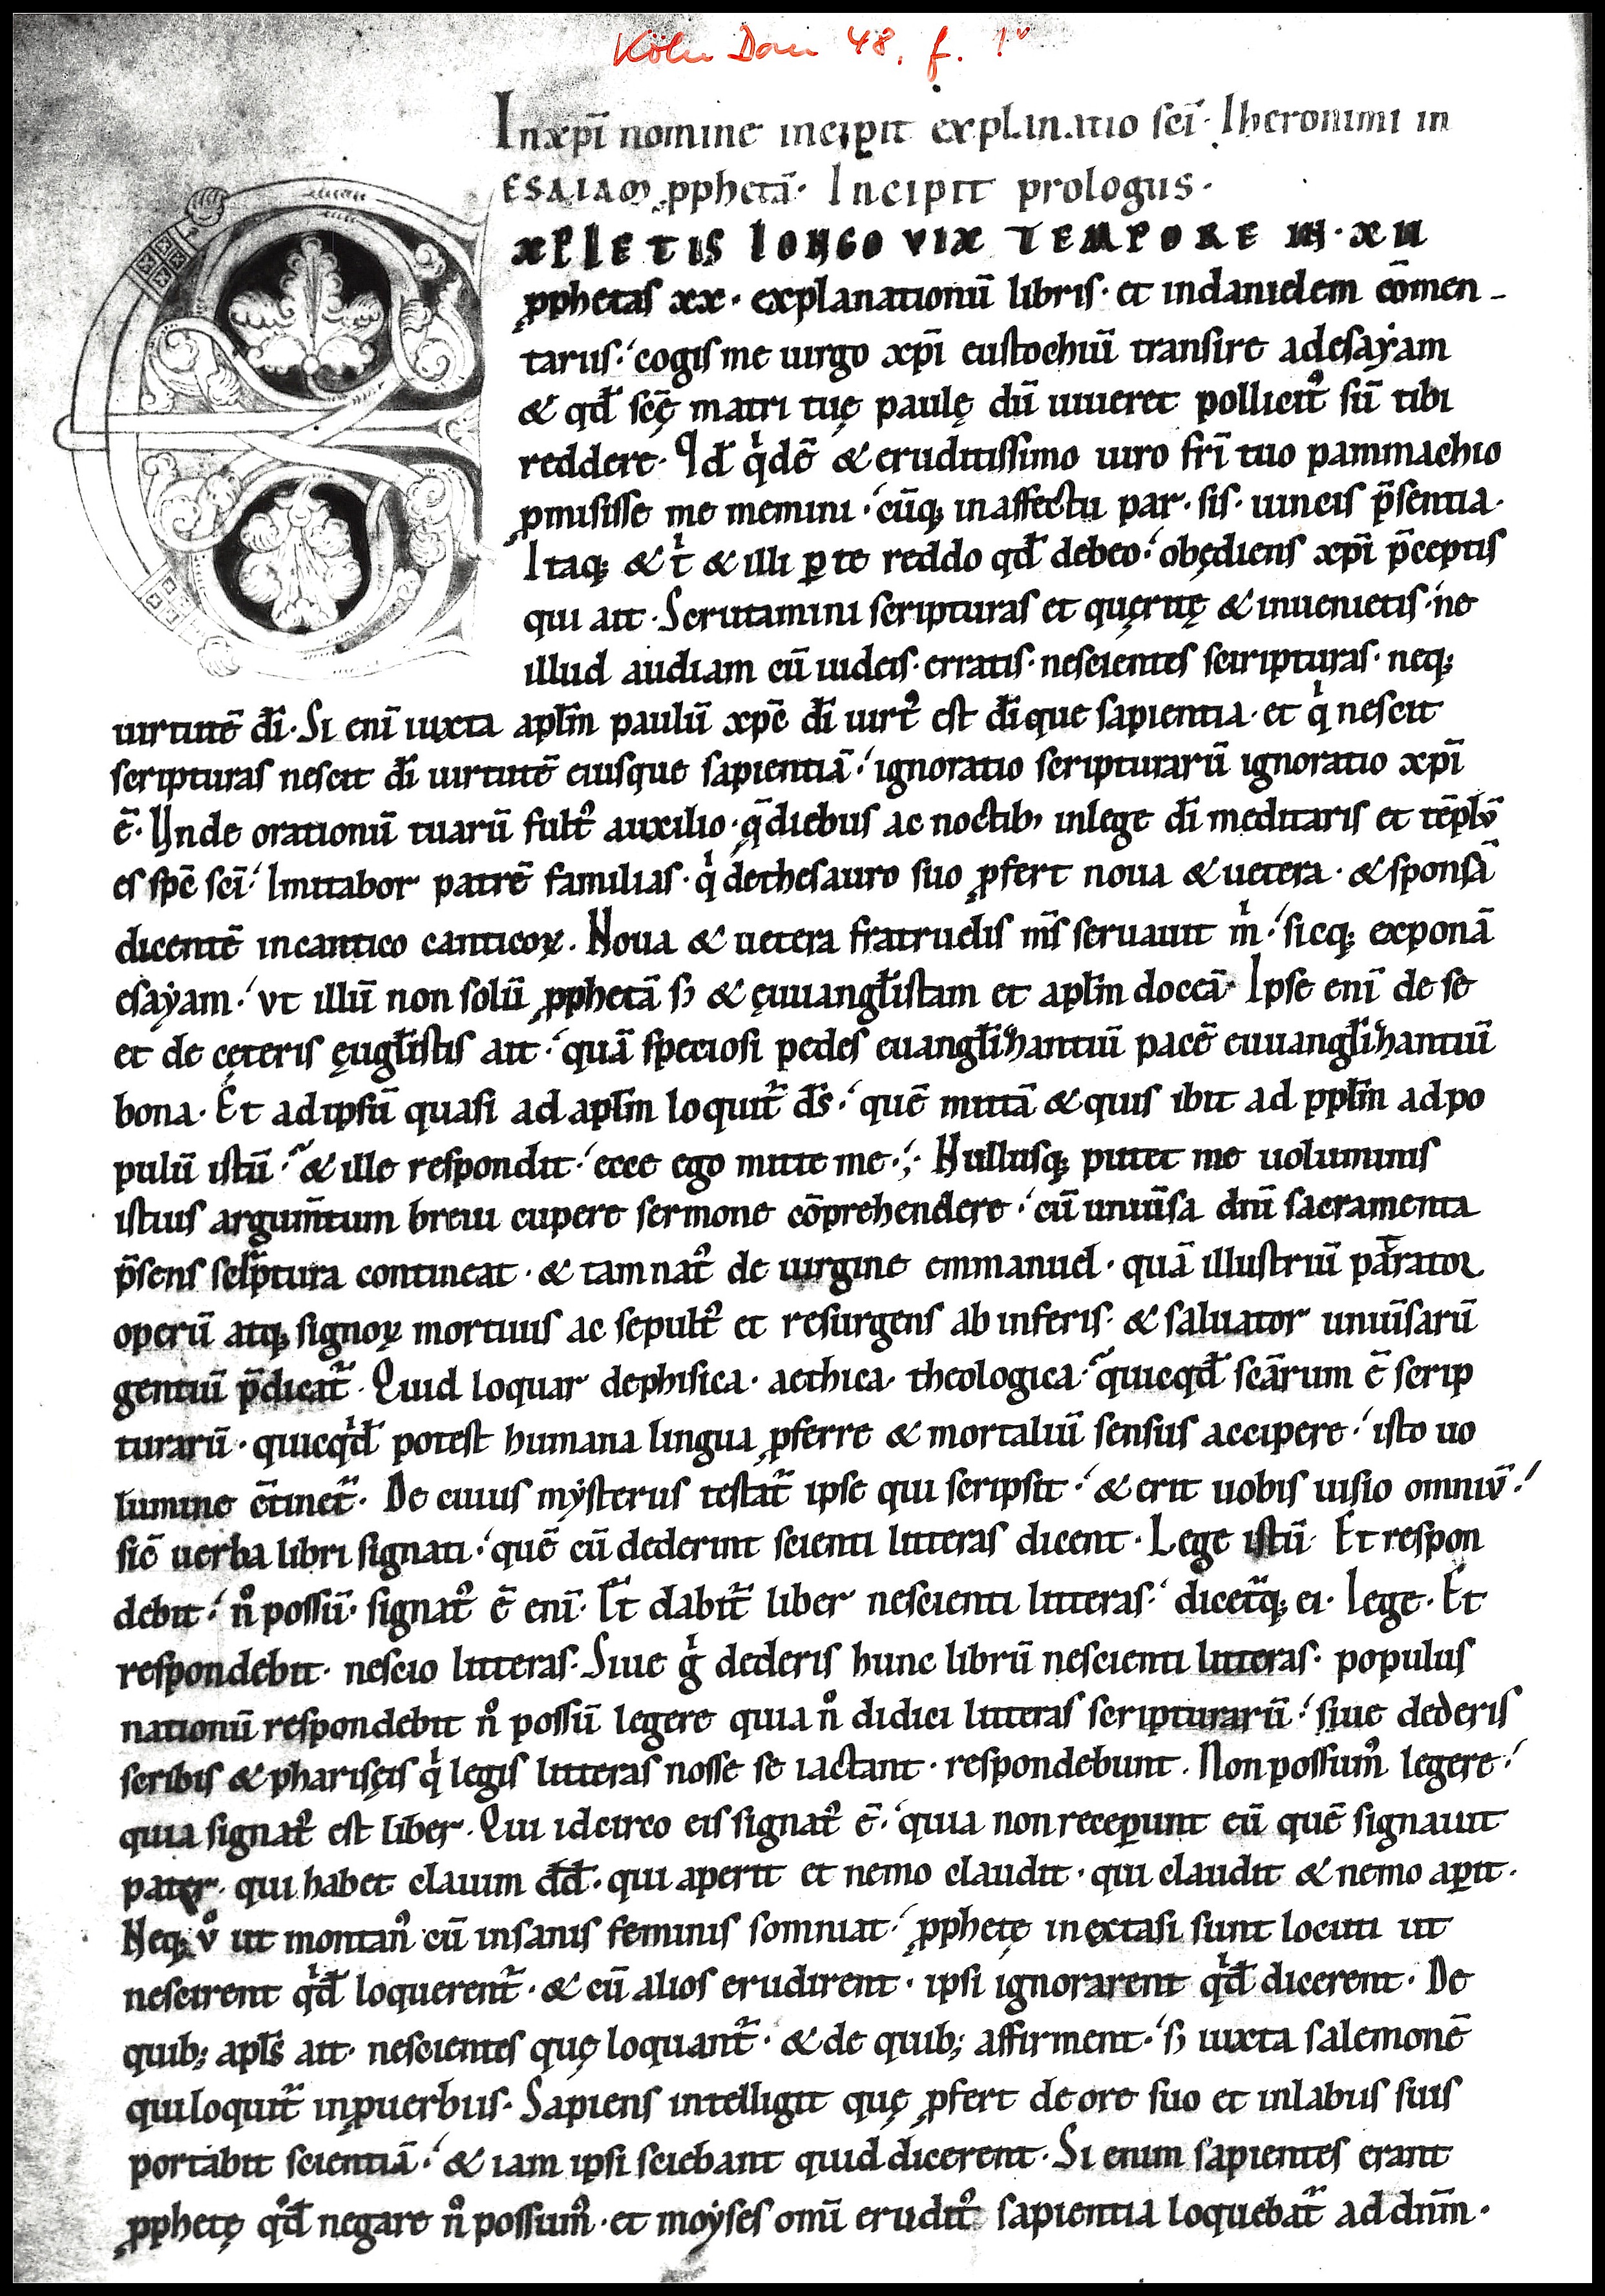 Köln Dom 48, f. 1v
In xpī nomine incipit explanatio scī. Iheronimi in
ESAIAM ꝓphetā. Incipit prologus.
EXPLETIS LONGO VIX TEMPORE IN. XII
ꝓphetas xx. explanationū libris. et indanielem cōmen-
tariis. cogis me uirgo xpī eustochiū transire adesaẏam
& qđ scę̄ matri tuę paulę dū uiueret pollicitꝰ sū tibi
reddere. Id qͥdē & eruditissimo uiro frī tuo pammachio
ꝓmisisse me memini. cūq; inaffectu par. sis. uincis p̄sentia.
Itaq; & tͥ & illi ꝑ te reddo qđ debeo. obędiens xpī p̄ceptis
qui ait. Scrutamini scripturas et quęritę & inuenietis. ne
illud audiam cū iudeis. erratis. nescientes sciripturas. neq;
uirtutē dī. Si enī iuxta apłm paulū xpē dī uirtꝰ est dī que sapientia. et qͥ nescit
scripturas nescit dī uirtutē eiusque sapientiā. ignoratio scripturarū ignoratio xpī
ē. Unde orationū tuarū fultꝰ auxilio. q̄ diebus ac noctib; inlege dī meditaris et tēplū
es spē scī. Imitabor patrē familias. qͥ dethesauro suo ꝓfert noua & uetera. & sponsā
dicentē incantico canticoꝝ. Noua & uetera fratruelis m̄s seruauit mͥ. sicq; exponā
esaẏam. vt illū non solū ꝓphetā s; & ęuuangłistam et apłm doceā. Ipse enī de se
et de cęteris ęugłistis ait. quā speciosi pedes euangłihantiū pacē euuangłihantiū
bona. Et adipsū quasi ad apłm loquit᷑ d̄s. quē mittā & quis ibit ad ppłm adpo
pulū istū. & ille respondit. ecce ego mitte me. Nullusq; putet me uoluminis
istius argum̄tum breui cupere sermone cōprehendere. cū uniūsa dnī sacramenta
p̄sens scͥptura contineat. & tam natꝰ de uirgine emmanuel. quā illustriū pat̄rator
operū atq; signoꝝ mortuus ac sepultꝰ et resurgens ab inferis. & saluator uniūsarū
gentiū p̄dicat᷑. Quid loquar dephisica. aethica. theologica. quicqđ scārum ē scrip
turarū. quicqͥđ potest humana lingua ꝓferre & mortaliū sensus accipere. isto uo
lumine c̄tinet᷑. De cuius mẏsteriis testat᷑ ipse qui scripsit. & erit uobis uisio omniū.
sic̄ uerba libri signati. quē cū dederint scienti litteras dicent. Lege istū. Et respon
debit. nͦ possū. signatꝰ ē enī. Et dabit᷑ liber nescienti litteras. dicet᷑q; ei. Lege. Et
respondebit. nescio litteras. Siue gͥ dederis hunc librū nescienti litteras. populus
nationū respondebit nͦ possū legere quia nͦ didici litteras scripturarū. siue dederis
scribis & pharisęis qͥ legis litteras nosse se iactant. respondebunt. Non possumꝰ legere.
quia signatꝰ est liber. Qui idcirco eis signatꝰ ē. quia non receꝑunt eū quē signauit
pater. qui habet clauim đđ. qui aperit et nemo claudit. qui claudit & nemo aꝑit.
Neq; vͦ ut montanꝰ cū insanis feminis somniat. ꝓphetę inextasi sunt locuti ut
nescirent qͥđ loquerent᷑. & cū alios erudirent. ipsi ignorarent qͥđ dicerent. De
quib; apłs ait. nescientes quę loquant᷑. & de quib; affirment. s; iuxta salemonē
quiloquit᷑ inꝓuerbiis. Sapiens intelligit quę ꝓfert de ore suo et inlabiis suis
portabit scientiā. & iam ipsi sciebant quid dicerent. Si enim sapientes erant
ꝓphetę qͦđ negare nͦ possumꝰ. et moẏses omī eruditꝰ sapientia loquebat᷑ ad dnm̄.